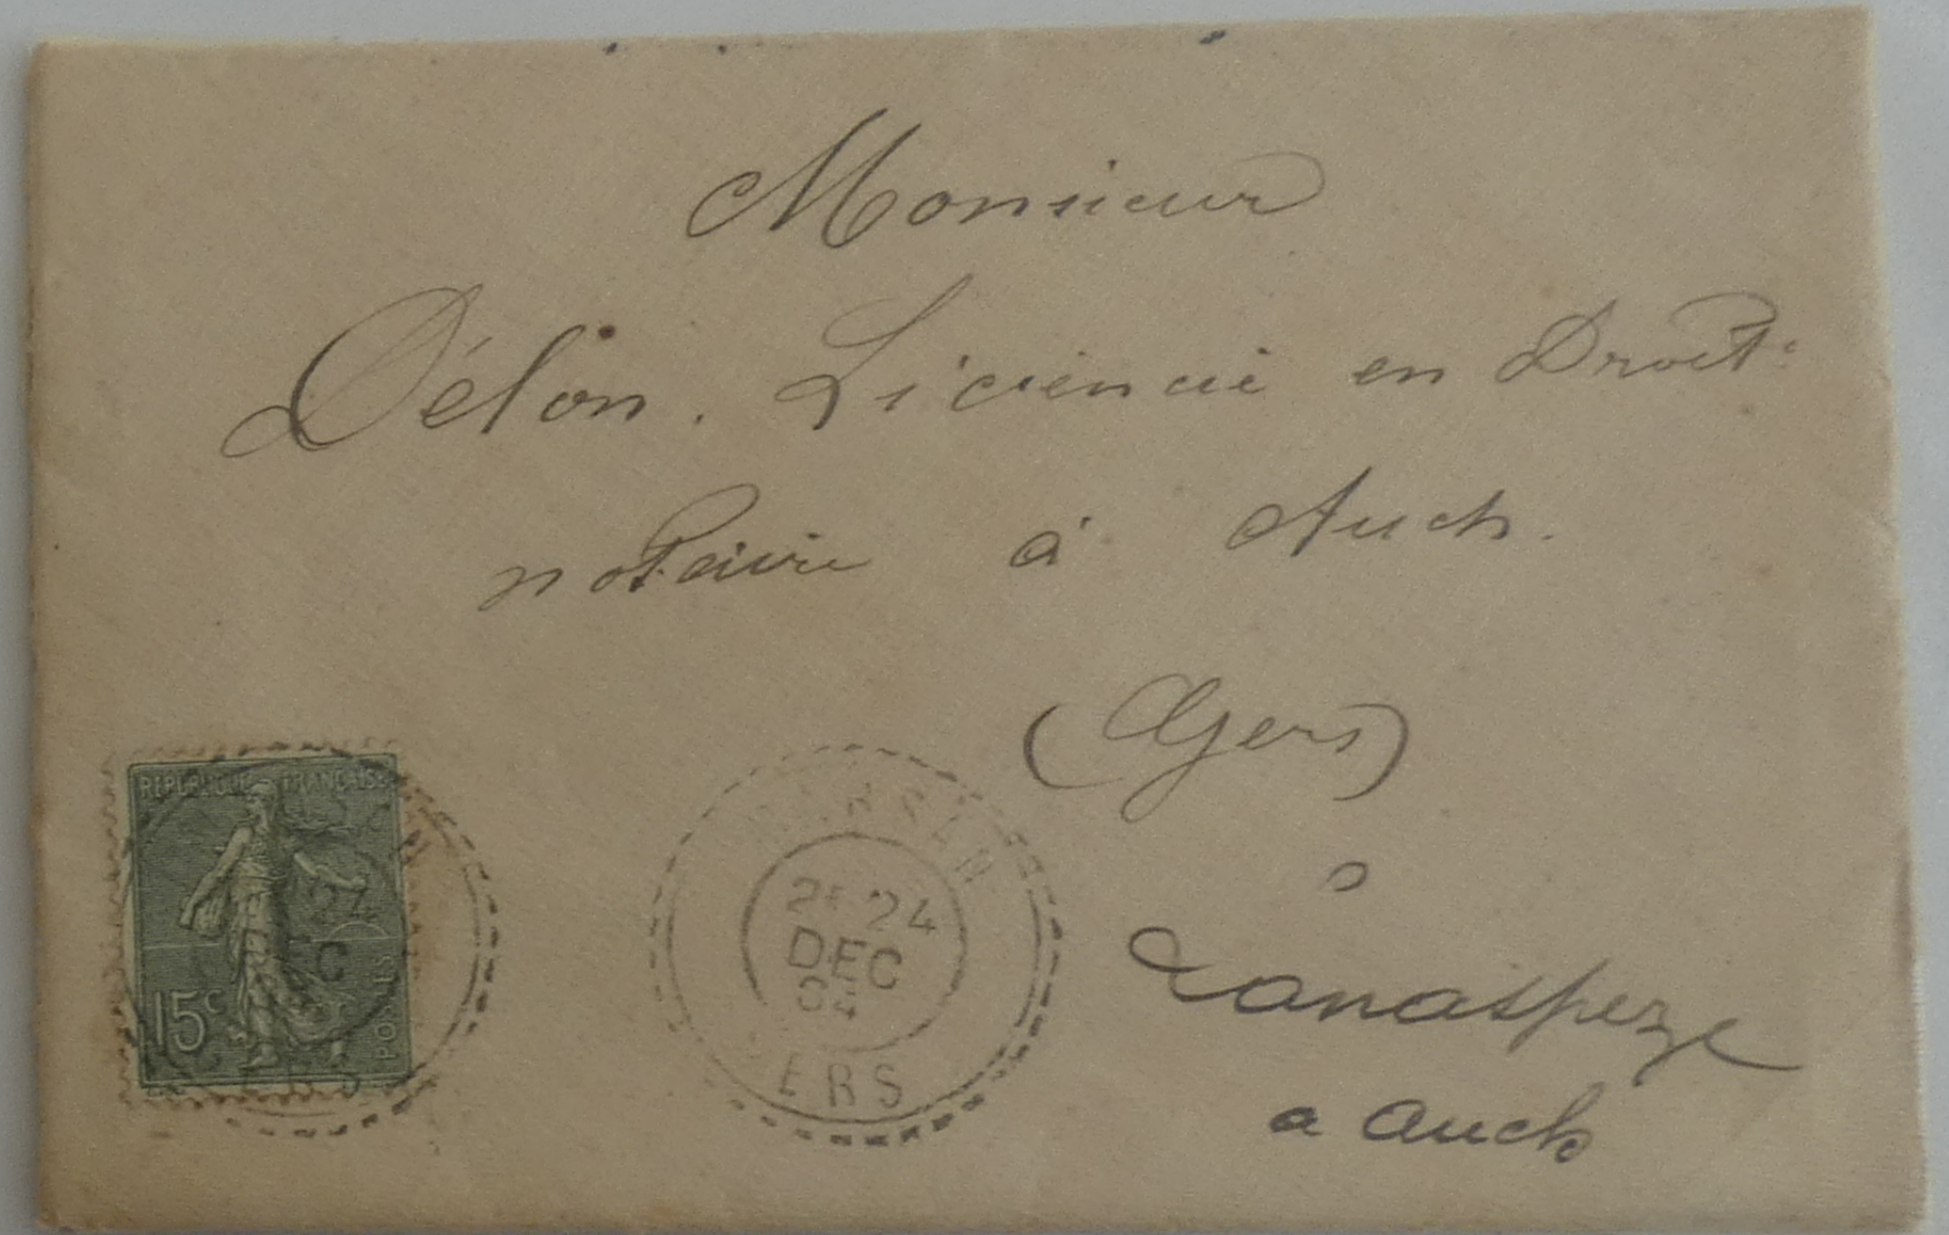 Monsieur
Délon. Liciencié en Droit.
notaire à Auch.
(Gers)
Lanaspeze
a auch
REPUBLIQUE FRANÇAISE
15c
POSTES
24
DEC
ERS
24
DEC
04
ERS